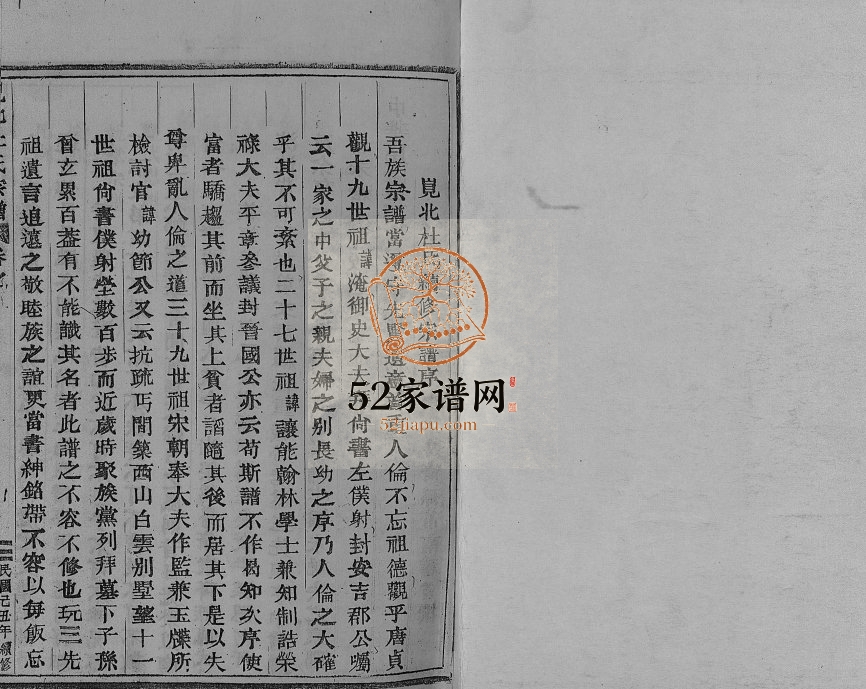 崑北杜氏續修宗譜序
吾族宗譜當遵守先賢遺意首重人倫不忘祖德觀乎唐貞
觀十九世祖諱淹御史大夫尚書左僕射封安吉郡公囑
云一家之中父子之親夫婦之別長幼之序乃人倫之大確
乎其不可紊也二十七世祖諱讓能翰林學士兼知制誥榮
祿大夫平章參議封晉國公亦云苟斯譜不作曷知次序使
富者驕趨其前而坐其上貧者謟隨其後而居其下是以失
尊卑亂人倫之道三十九世祖宋朝奉大夫作監兼玉牒所
檢討官諱幼節公又云抗疏丐閒築西山白雲別墅塟十一
世祖尙書僕射塋數百步而近歲時聚族黨列拜墓下子孫
曾玄累百葢有不能識其名者此譜之不容不修也玩三先
祖遺言追遠之敬睦族之誼更當書紳銘帶不容以每飯忘
杜氏宗譜
民國己丑年續修
52家谱网
52jiapu.com